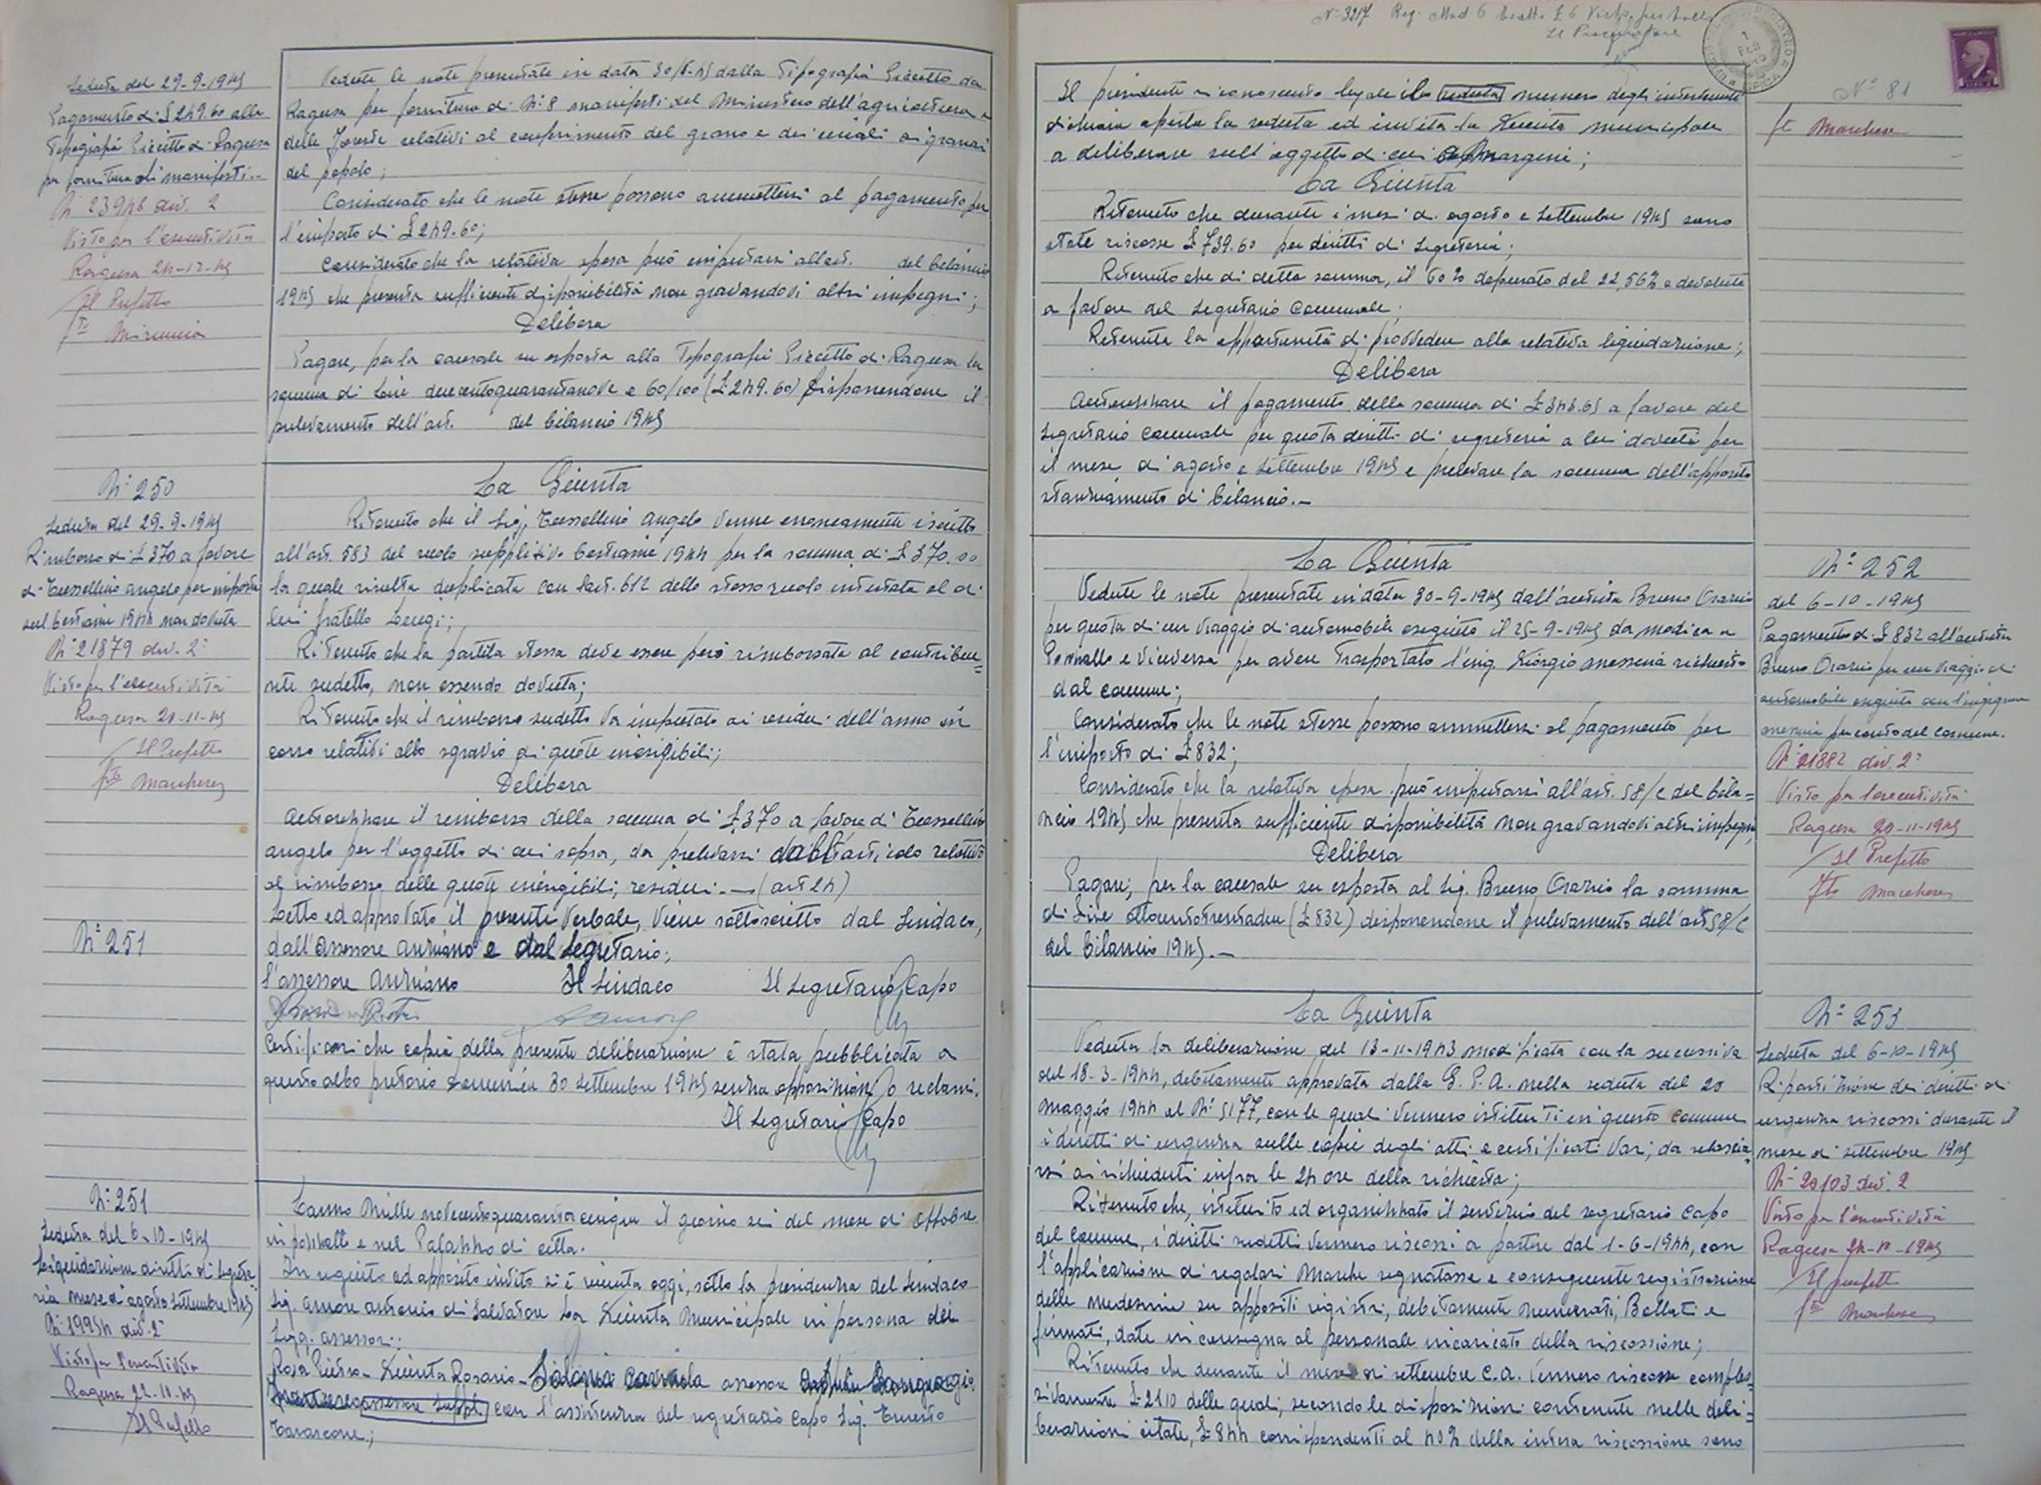 Seduta del 29-9-1945
Pagamento di £249.60 alla
Tipografia Criscitto di Ragusa
per fornitura di manifesti.-
N° 23946 div. 2
Visto per l'esecutività
Ragusa 24-12-45
Il Prefetto
Vedute le note presentate in data dalla Tipografia da
Ragusa per fornitura di N° 8 manifesti del Ministero dell'agricoltura e
delle Foreste relativi al conferimento del grano e dei cereali ai granai
del popolo;
Considerato che le note stesse possono ammettersi al pagamento per
l'importo di £249.60;
Considerato che la relativa spesa può imputarsi all'art. del bilancio
1945 che presenta sufficiente disponibilità non gravandovi altri impegni;
Delibera
Pagare, per la causale su esposta alla Tipografia di Ragusa la
somma di Lire duecentoquarantanove e 60/100 (£249.60) disponendone il
prelevamento dell'art. del bilancio 1945
N° 250
Seduta del 29-9-1945
Rimborso di £370 a favore
di Angelo per imposta
sul bestiame 1944 non dovuta
N° 21879 div. 2°
Visto per l'esecutività
Ragusa 20-11-45
Il Prefetto
La Giunta
Ritenuto che il Sig. Angelo venne erroneamente iscritto
all'art. 583 del ruolo suppletivo bestiame 1944 per la somma di £370.00
la quale risulta duplicata con l'art. 612 dello stesso ruolo intestata al di
lui fratello Luigi;
Ritenuto che la partita stessa deve essere però rimborsata al contribue=
nte sudetto, non essendo dovuta;
Ritenuto che il rimborso sudetto va imputato ai residui dell'anno in
corso relativi allo sgravio di quote inesigibili;
Delibera
Autorizzare il rimborso della somma di £370 a favore di
Angelo per l'oggetto di cui sopra, da prelevarsi dall'articolo relativo
al rimborso delle quote inesigibili; residui.- (art 24)
Letto ed approvato il presente verbale, viene sottoscritto dal Sindaco,
dall'assessore anziano e dal Segretario;
N° 251
L'assessore anziano Il Sindaco Il Segretario Capo
Certificasi che copia della presente deliberazione è stata pubblicata a
questo albo pretorio domenica 30 settembre 1945 senza opposizioni o reclami.
Il Segretario Capo
N° 251
Seduta del 6-10-1945
Liquidazione diritti di segrete
ria mese di agosto settembre 1945
N° 19954 div. 2°
Visto per l'esecutività
Ragusa 22-10-45
Il Prefetto
L'anno Mille novecentoquarantacinque il giorno sei del mese di Ottobre
in pozzallo e nel Palazzo di città.
In seguito ad apposito invito si è riunita oggi, sotto la presidenza del Sindaco
Sig. Amore Antonio di Salvatore la Giunta Municipale in persona dei
Sigg. assessori:
Rosa Pietro - Giunta Rosario - assessore
assessore suppl. con l'assistenza del segretario capo Sig. Ernesto
Tarascone;
N° 3217 Reg. Mod. 6
Il Procuratore
N° 81
Il presidente riconosciuto legale il seduta numero degli intervenuti
dichiara aperta la seduta ed invita la Giunta municipale
a deliberare sull'oggetto di cui a margine;
La Giunta
Ritenuto che durante i mesi di agosto e settembre 1945 sono
state riscosse £739.60 per diritti di segreteria;
Ritenuto che di detta somma, il 60% depurato del 22,56% è devoluto
a favore del segretario comunale;
Ritenuta la opportunità di provvedere alla relativa liquidazione;
Delibera
Autorizzare il pagamento della somma di £343.65 a favore del
segretario comunale per quota diritti di segreteria a lui dovuti per
il mese di agosto e settembre 1945 e prelevare la somma dall'apposito
stanziamento di bilancio.-
La Giunta
Vedute le note presentate in data 30-9-1945 dall'autista Bruno Orazio
per quota di un viaggio di automobile eseguito il 25-9-1945 da Modica a
Pozzallo e viceversa per avere trasportato l'ing. Giorgio Messina richiesto
dal comune;
Considerato che le note stesse possono ammettersi al pagamento per
l'importo di £832;
Considerato che la relativa spesa può imputarsi all'art. 58/c del bila=
ncio 1945 che presenta sufficiente disponibilità non gravandovi altri impegni;
Delibera
Pagare, per la causale su esposta al Sig. Bruno Orazio la somma
di Lire ottocentotrentadue (£832) disponendone il prelevamento dell'art 58/c
del bilancio 1945.-
N° 252
del 6-10-1945
Pagamento di £832 all'autista
Bruno Orazio per un viaggio di
automobile eseguito con l'ingegnere
Messina per conto del comune.
N° 21882 div. 2°
Visto per l'esecutività
Ragusa 20-11-1945
Il Prefetto
La Giunta
Veduta la deliberazione del 13-11-1943 modificata con la successiva
del 18-3-1944, debitamente approvata dalla G.P.A. nella seduta del 20
maggio 1944 al N° 5177, con le quali vennero istituiti in questo comune
i diritti di urgenza sulle copie degli atti e certificati vari, da rilascia=
rsi ai richiedenti infra le 24 ore della richiesta;
Ritenuto che, istituito ed organizzato il servizio del segretario capo
del comune, i diritti sudetti vennero riscossi a partire dal 1-6-1944, con
l'applicazione di regolari marche segnatasse e conseguente registrazione
delle medesime su appositi registri, debitamente numerati, Bollati e
firmati, date in consegna al personale incaricato della riscossione;
Ritenuto che durante il mese di settembre c.a. vennero riscosse comples=
sivamente £2110 delle quali, secondo le disposizioni contenute nelle deli=
berazioni citate, £844 corrispondenti al 40% della intera riscossione sono
N° 253
Seduta del 6-10-1945
Ripartizione dei diritti di
urgenza riscossi durante il
mese di settembre 1945
N° 20103 div. 2
Visto per l'esecutività
Ragusa 24-10-1945
Il prefetto